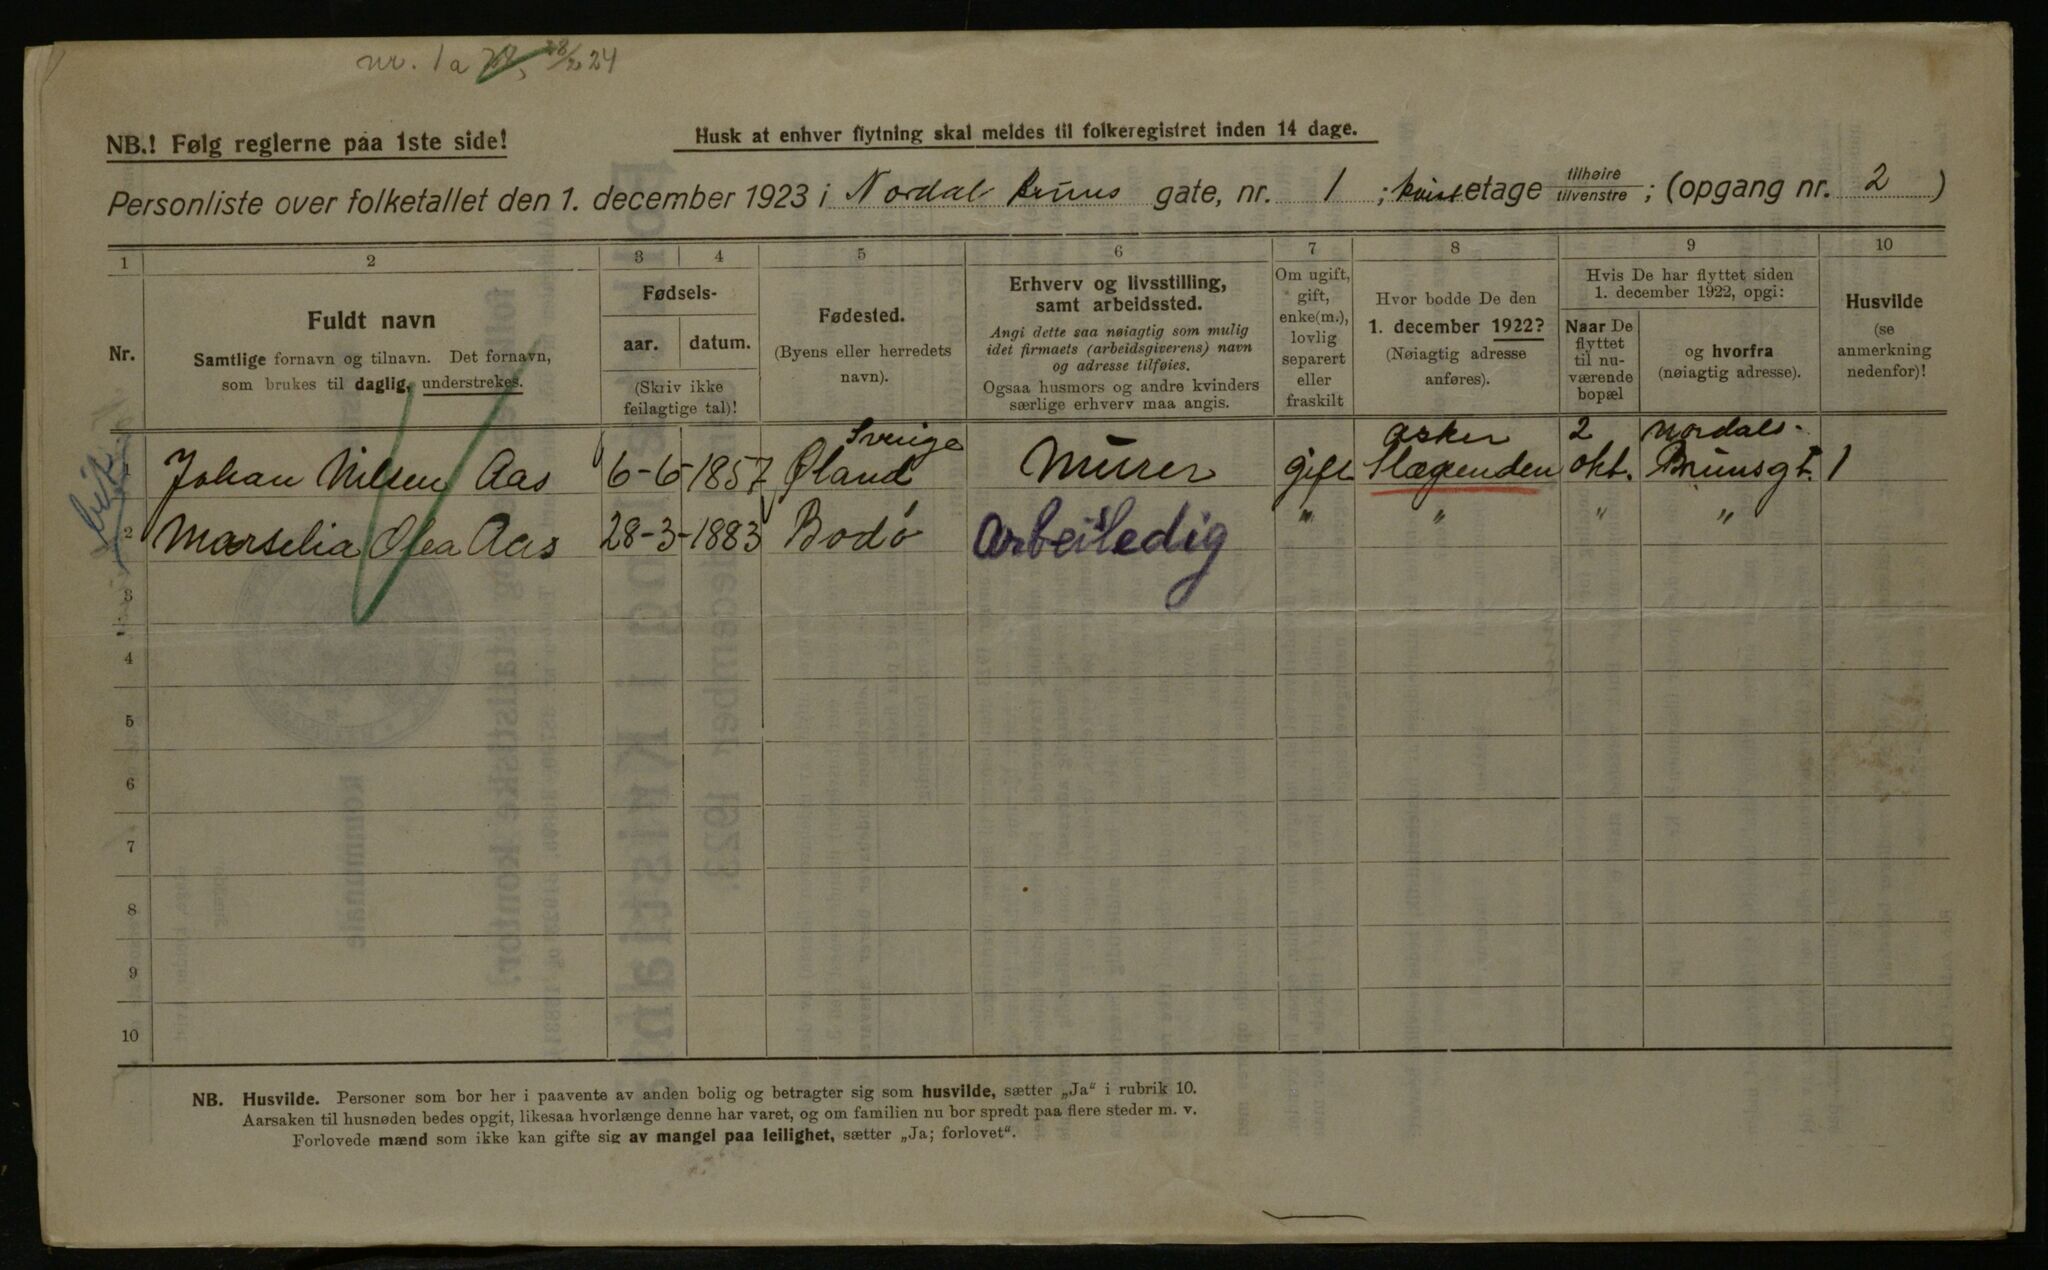 nr. 1a 28/2 24
NB.! Følg reglerne paa 1ste side!
Husk at enhver flytning skal meldes til folkeregistret inden 14 dage.
Personliste over folketallet den 1. december 1923 i Nordal Bruns gate, nr. 1 ; kvist etage tilhøire/tilvenstre ; (opgang nr. 2 )
1 2 3 4 5 6 7 8 9 10
Nr.
Fuldt navn
Samtlige fornavn og tilnavn. Det fornavn,
som brukes til daglig, understrekes.
Fødsels-
aar. datum.
(Skriv ikke
feilagtige tal)!
Fødested.
(Byens eller herredets
navn).
Erhverv og livsstilling,
samt arbeidssted.
Angi dette saa nøiagtig som mulig
idet firmaets (arbeidsgiverens) navn
og adresse tilføies.
Ogsaa husmors og andre kvinders
særlige erhverv maa angis.
Om ugift,
gift,
enke(m.),
lovlig
separert
eller
fraskilt
Hvor bodde De den
1. december 1922?
(Nøiagtig adresse
anføres).
Hvis De har flyttet siden
1. december 1922, opgi:
Naar De
flyttet
til nu-
værende
bopæl
og hvorfra
(nøiagtig adresse).
Husvilde
(se
anmerkning
nedenfor)!
Sverige asker 2 Nordals-
1 Johan Nilsen Aas 6-6-1857 Øland Murer gift Slæpenden okt. Brunsgt. 1
2 Marselia Olea Aas 28-3-1883 Bodø Arbeisledig " " " "
3
4
5
6
7
8
9
10
NB. Husvilde. Personer som bor her i paavente av anden bolig og betragter sig som husvilde, sætter „Ja“ i rubrik 10.
Aarsaken til husnøden bedes opgit, likesaa hvorlænge denne har varet, og om familien nu bor spredt paa flere steder m. v.
Forlovede mænd som ikke kan gifte sig av mangel paa leilighet, sætter „Ja; forlovet“.